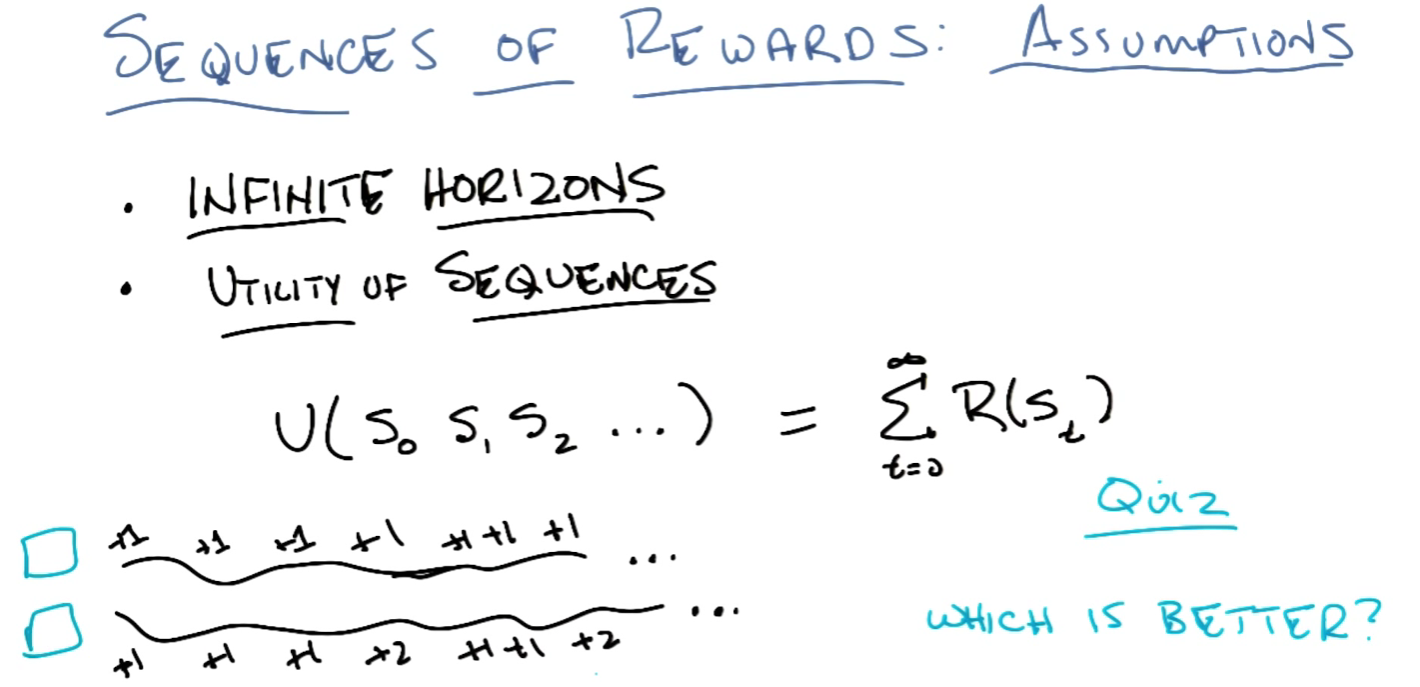 SEQUENCES OF REWARDS: ASSUMPTIONS
• INFINITE HORIZONS
• UTILITY OF SEQUENCES
U(S₀ S₁ S₂ ...) = ∑_{t=0}^{∞} R(S_t)
QUIZ
+1 +1 +1 +1 +1 +1 +1 ...
WHICH IS BETTER?
+1 +1 +1 +2 +1 +1 +2 ...